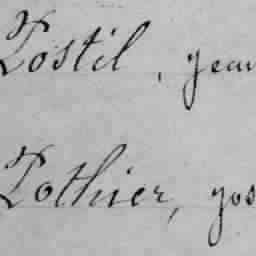 Postil, jean
Pothier, jos